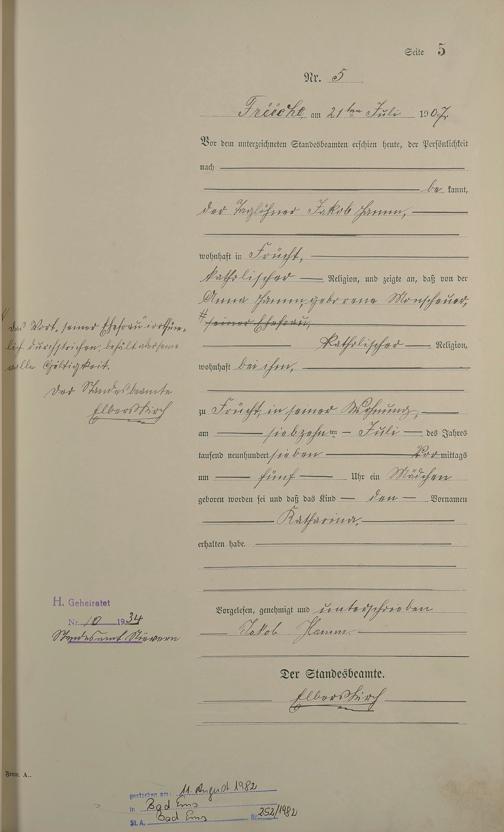 Seite 5
Nr. 5
Früecht, am 21ten Juli 1907.
Vor dem unterzeichneten Standesbeamten erschien heute, der Persönlichkeit
nach
be kannt,
der Taglöhner Jakob Hamm,
wohnhaft in Frücht,
katholischer Religion, und zeigte an, daß von der
Anna Hamm, geborene Monschauer,
seiner Ehefrau,
Katholischer Religion,
wohnhaft bei ihm,
zu Frücht, in seiner Wohnung,
am siebzehn ten Juli des Jahres
tausend neunhundert sieben Vor mittags
um fünf Uhr ein Mädchen
geboren worden sei und daß das Kind den Vornamen
Katharina,
erhalten habe.
Vorgelesen, genehmigt und unterschrieben
Jakob Hamm
Der Standesbeamte.
Elberskirch
Das Wort "seiner Ehefrau" irrthüm-
lich durchstrichen, behält aber seine
volle Gültigkeit.
Der Standesbeamte
Elberskirch
H. Geheiratet
Nr. 10 1934
Standesamt Nievern
Form. A.
gestorben am: 11. August 1982
in Bad Ems
St. A. Bad Ems Nr. 252/1982